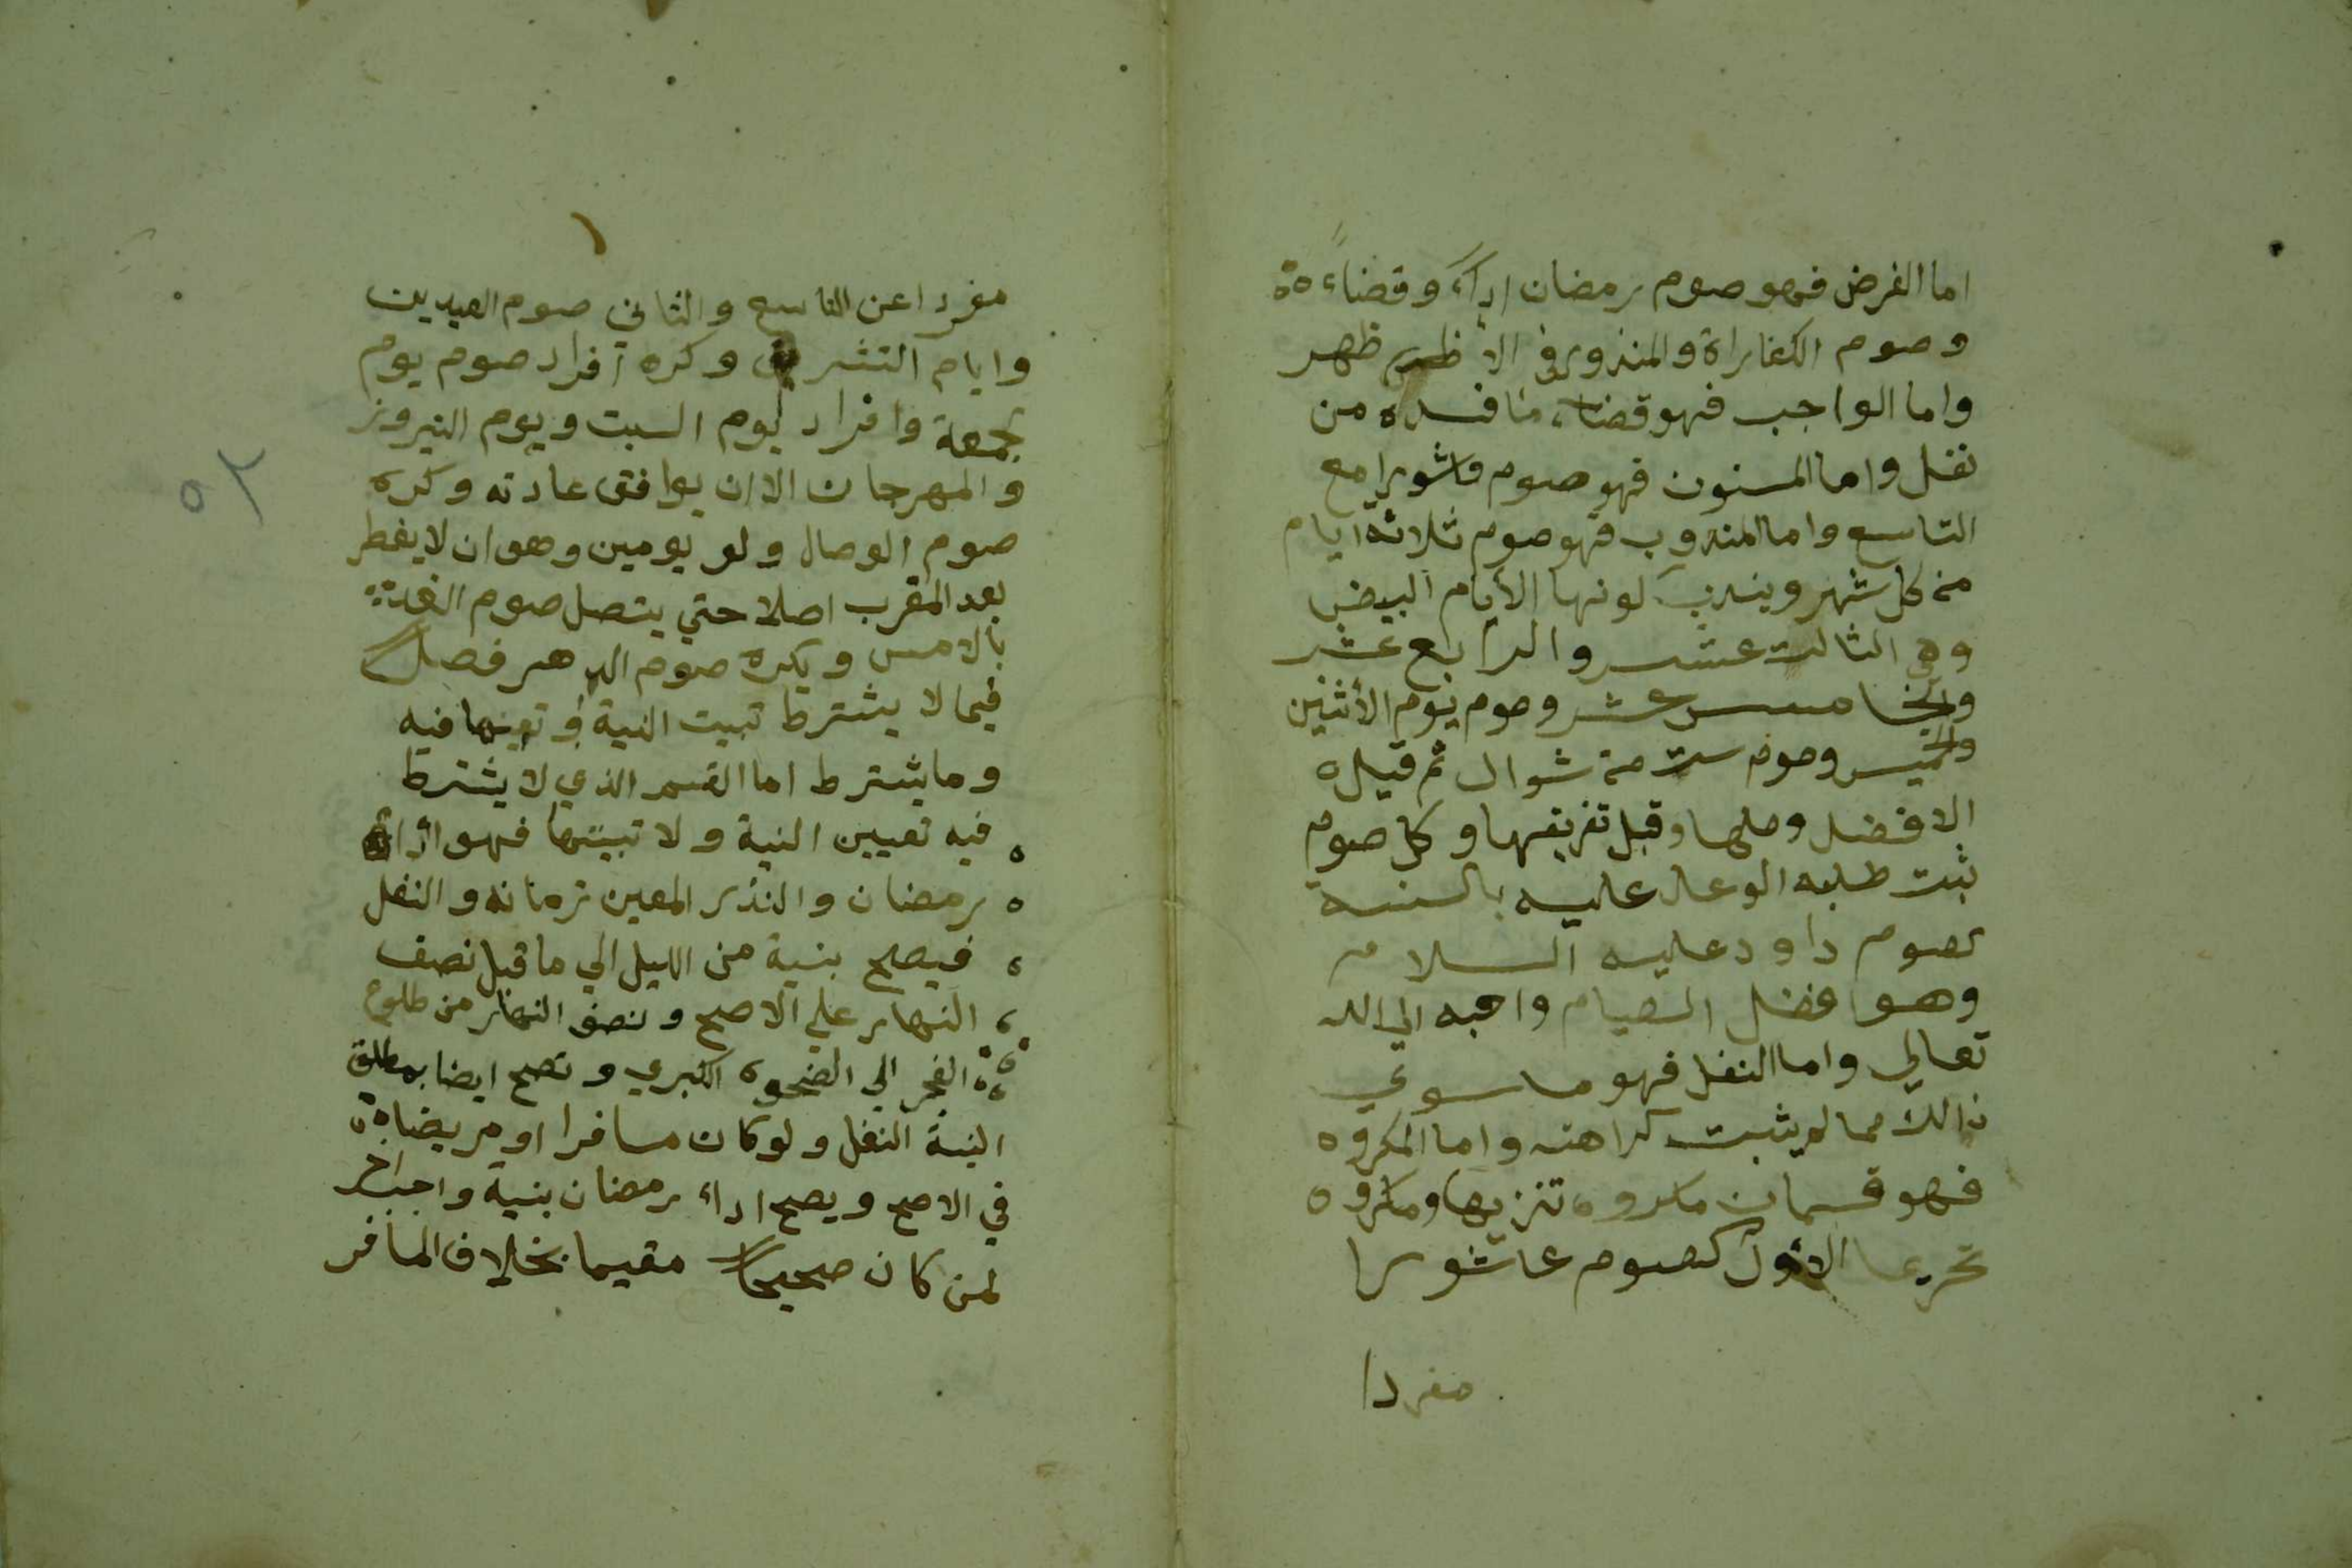 اما الفرض فهو صوم رمضان اداءً وقضاءً
وصوم الكفاراة والمنذور في الأظهر ظهر
واما الواجب فهو قضاء ما فسده من
نفل واما المسنون فهو صوم عاشورا مع
التاسع واما المندوب فهو صوم ثلاثة ايام
من كل شهر ويندب كونها الأيام البيض
وهي الثالث عشر والرابع عشر
والخامس عشر وصوم يوم الأثنين
والخميس وصوم ست من شوال ثم قيل
الافضل وصلها وقيل تفريقها وكل صوم
ثبت طلبه الوعد عليه بالسنة
كصوم داود عليه السلام
وهو افضل الصيام واحبه الي الله
تعالي واما النفل فهو ما سوي
ذالك مما لم يثبت كراهته واما المكروه
فهو قسمان مكروه تنزيها ومكروه
تحريما الأول كصوم عاشورا
مفردا
مفردا عن التاسع والثاني صوم العيدين
وايام التشريق وكره افراد صوم يوم
جمعة وافراد يوم السبت ويوم النيروز
والمهرجان الا ان يوافق عادته وكره
صوم الوصال ولو يومين وهو ان لا يفطر
بعد المغرب اصلا حتي يتصل صوم الغد
بالامس ويكره صوم الدهر فصل
فيما لا يشترط تبيت النية وتعينها فيه
وما يشترط اما القسم الذي لا يشترط
فيه تعيين النية ولا تبيتها فهو اداء
رمضان والنذر المعين زمانه والنفل
فيصح بنية من الليل الي ما قبل نصف
النهار علي الاصح ونصف النهار من طلوع
الفجر الي الضحوه الكبري وتصح ايضا بمطلق
النية النفل ولو كان مسافرا او مريضا
في الاصح ويصح اداء رمضان بنية واجب اخر
لمن كان صحيحا مقيما بخلاف المسافر
٥٢